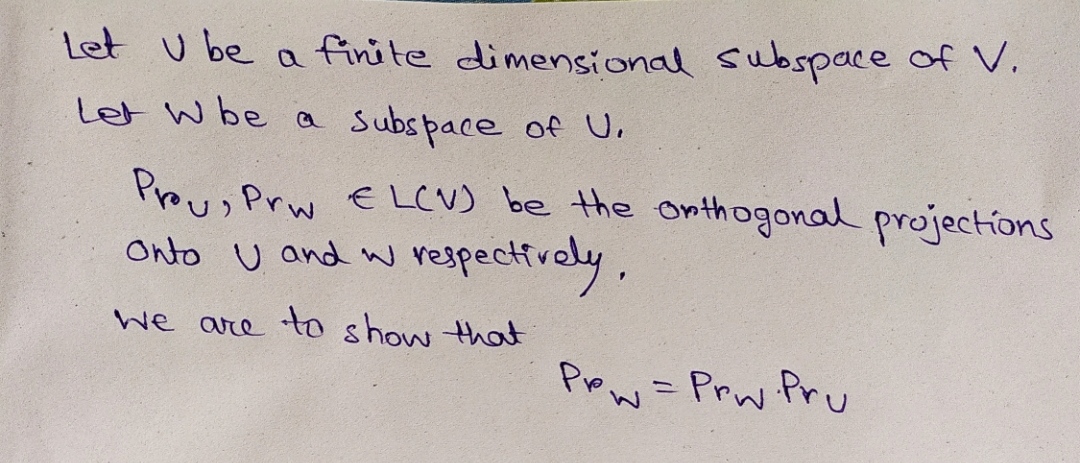 Let U be a finite dimensional subspace of V.
Let W be a subspace of U.
Pr_U, Pr_W ∈ L(V) be the orthogonal projections
onto U and W respectively.
we are to show that
Pr_W = Pr_W · Pr_U